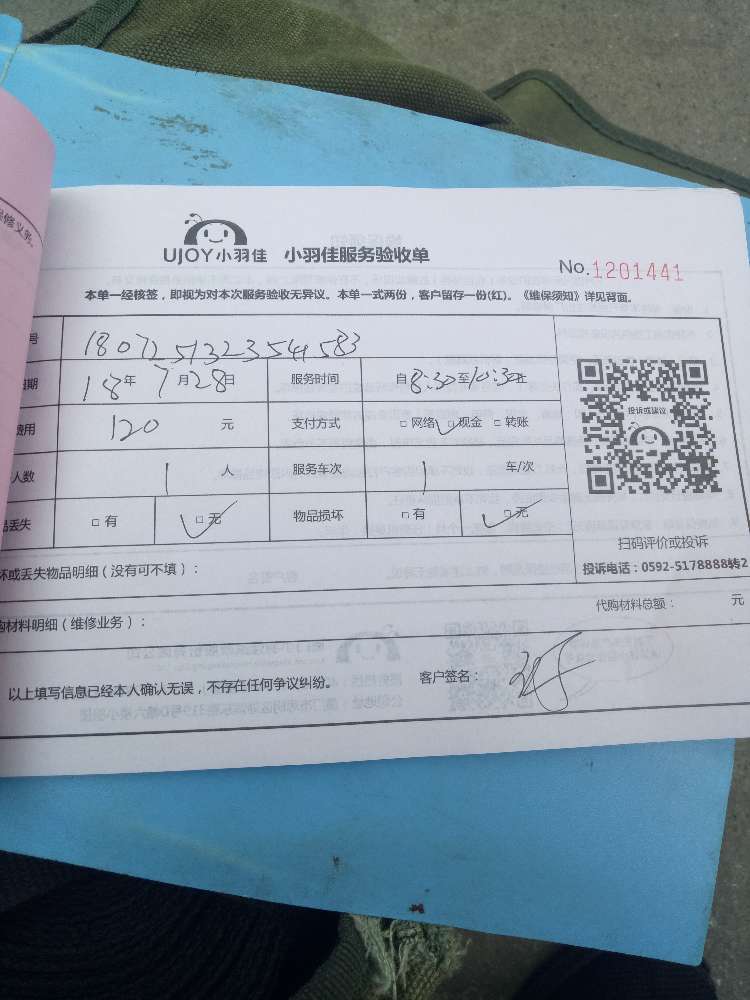 保修义务。
UJOY小羽佳 小羽佳服务验收单
No.1201441
本单一经核签，即视为对本次服务验收无异议。本单一式两份，客户留存一份(红)。《维保须知》详见背面。
号 1807251323541583
期 18年7月28日 服务时间 自8:30至10:30止
费用 120 元 支付方式 □网络 □现金 □转账
投诉或建议
人数 1 人 服务车次 1 车/次
品丢失 □有 □无 物品损坏 □有 □无
扫码评价或投诉
投诉电话：0592-5178888转2
坏或丢失物品明细（没有可不填）：
代购材料总额： 元
购材料明细（维修业务）：
以上填写信息已经本人确认无误，不存在任何争议纠纷。 客户签名：